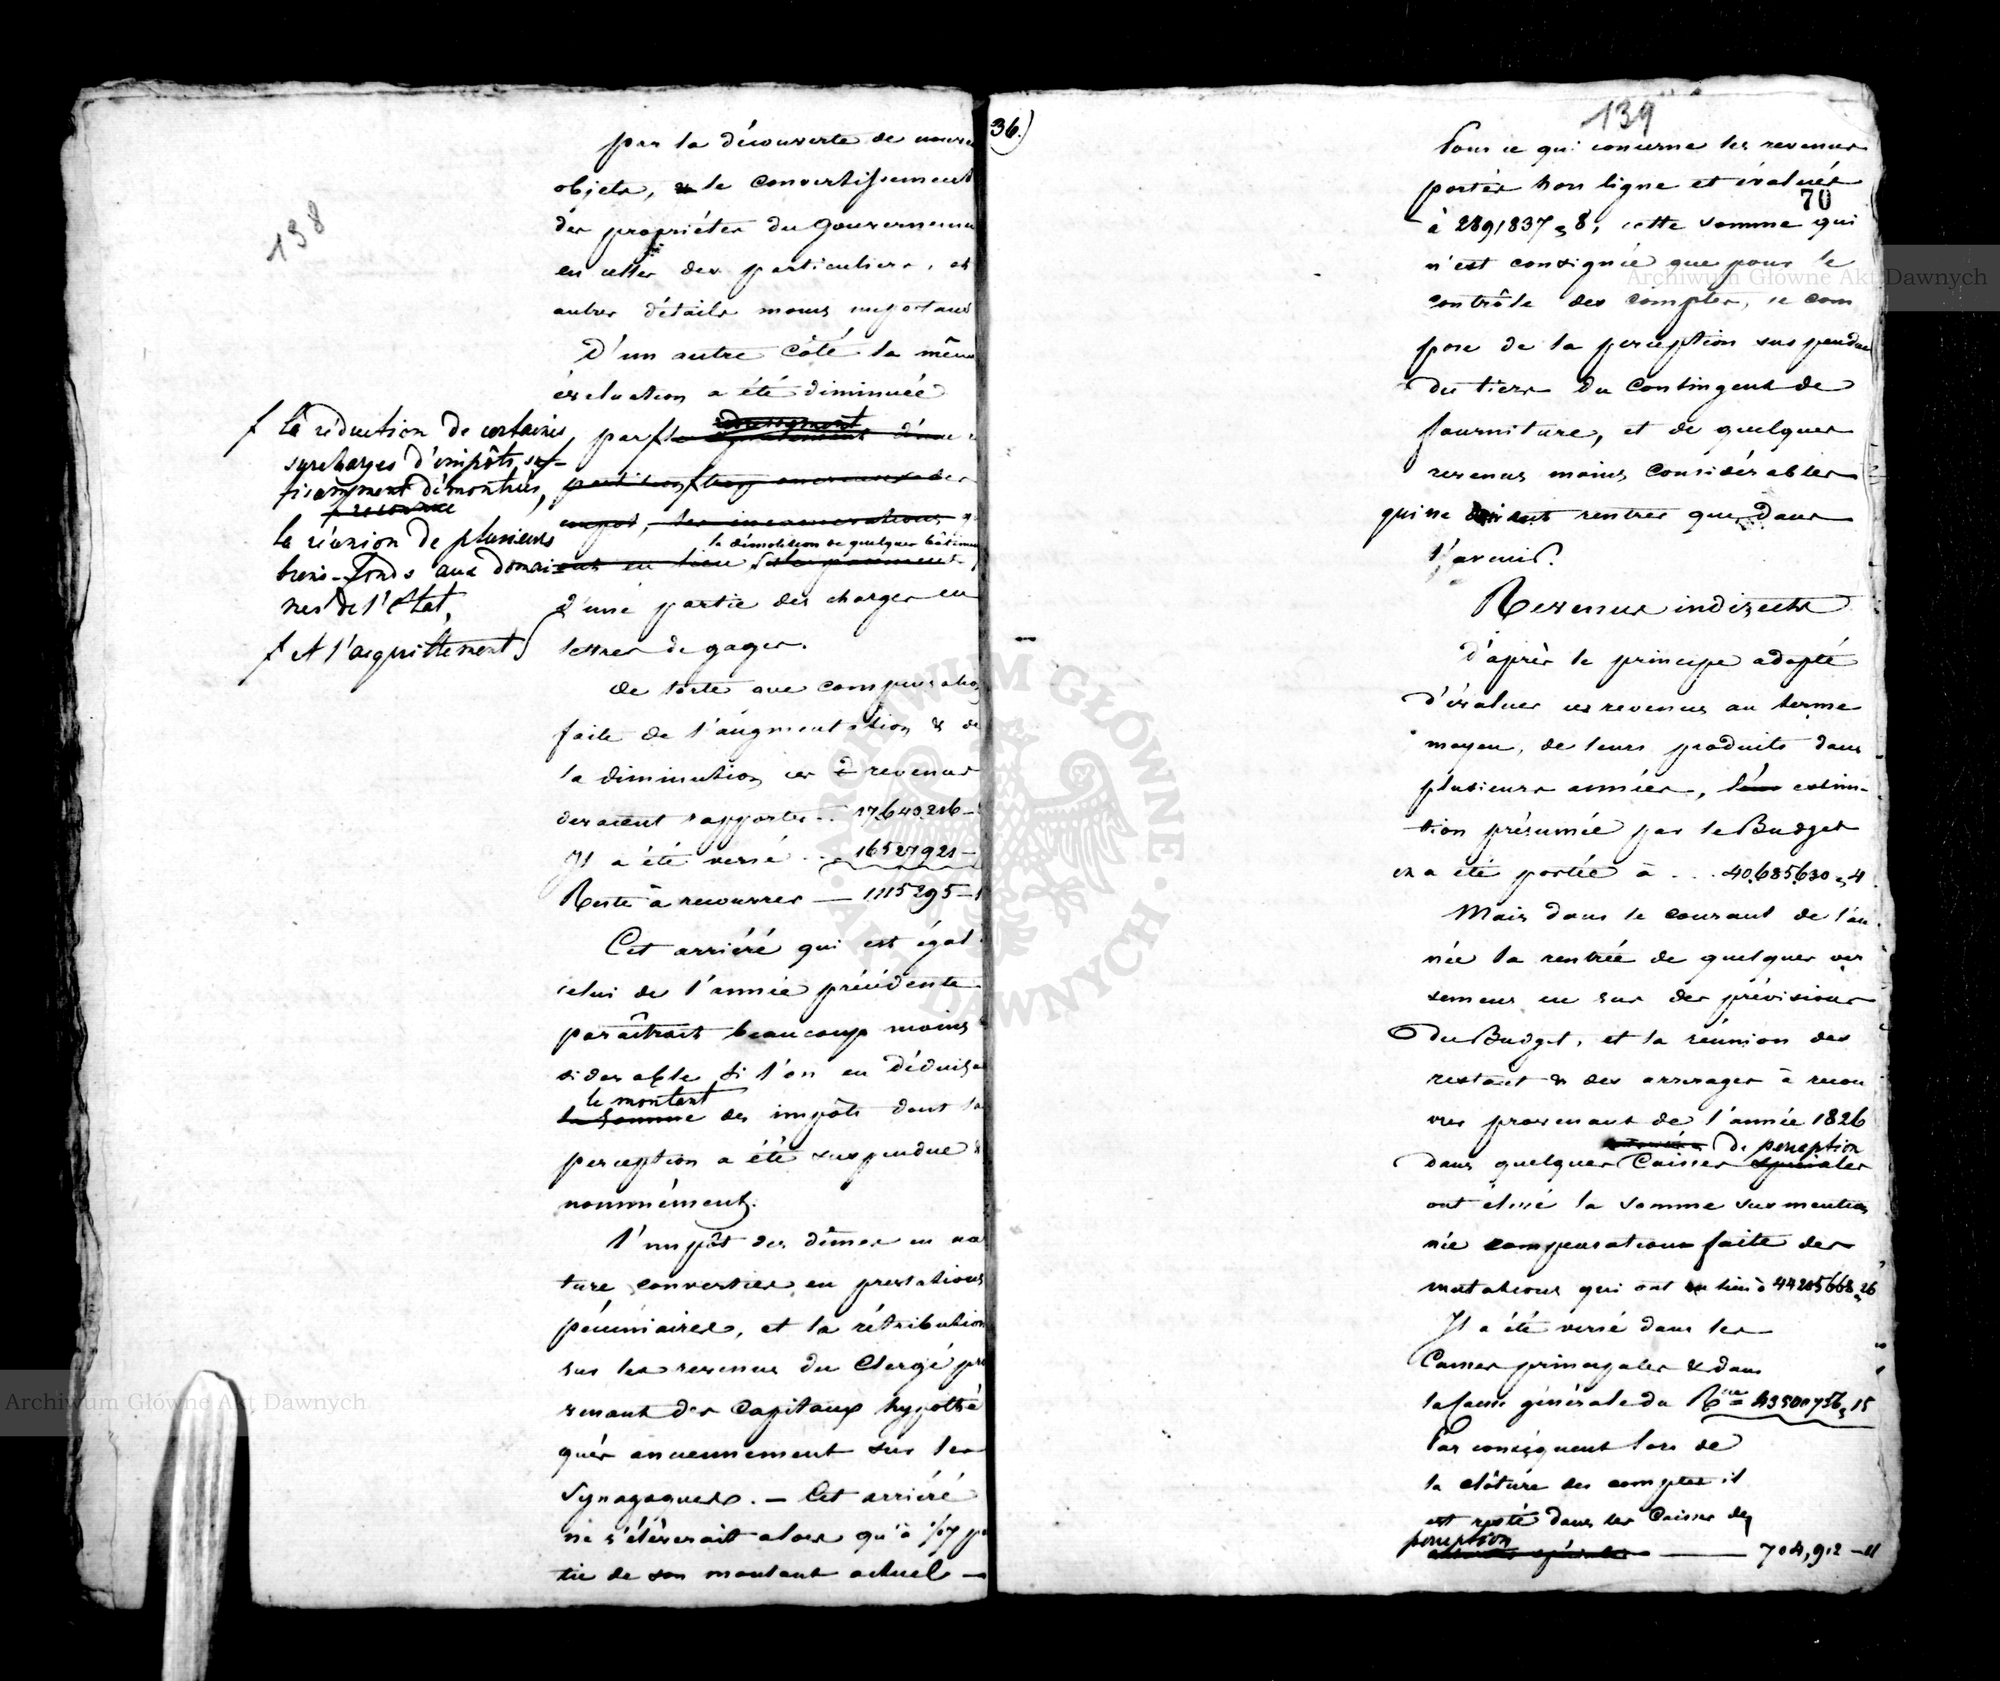 138
par la découverte de nouve
objets, le convertissement
des propriétés du Gouvernem
en celles des particuliers, et
autres détails moins importans
D'un autre côté la même
évaluation a été diminuée
par
la démolition de quelques bâtimen
d'une partie des charges en
lettres de gages.
De sorte que compensation
faite de l'augmentation & de
la diminution, ces revenus
devaient rapporter .. 17,640,216 –
Il a été versé .. 16527921 –
Reste à recouvrer — 1115295 –
Cet arriéré qui est égal
celui de l'année précédente
paraîtrait beaucoup moins
sidérable si l'on en déduisa
le montant
la somme des impôts dont la
perception a été suspendue &
nommément.
l'impôt des dîmes en na
ture, converties en prestations
pécuniaires, et la rétribution
sur les revenus du Clergé pro
venant des Capitaux hypothé
qués anciennement sur les
Synagogues. – Cet arriéré
ne s'élèverait alors qu'à 1/17 pa
tie de son montant actuel –
f la réduction de certaines
surcharges d'impôts, suf-
fisamment démontrés,
la réunion de plusieurs
biens-fonds aux domai
nes de l'Etat,
f et l'acquittement
36.)
139
70
Pour ce qui concerne les revenus
portés hors ligne et évalués
à 2891837 „ 8, cette somme qui
n'est consignée que pour le
contrôle des comptes, se com
pose de la perception suspendue
du tiers du Contingent de
fourniture, et de quelques
revenus moins considérables
qui ne doivent rentrer que dans
l'avenir.
Revenus indirects
D'après le principe adopté
d'évaluer ces revenus au terme
moyen, de leurs produits dans
plusieurs années, l'estim-
tion présumée par le Budget
en a été portée à .... 40,685,630 „ 4
Mais dans le courant de l'an
née la rentrée de quelques ver
semens en sus des prévisions
du Budget, et la réunion des
restant & des arrerages à recou
vrer provenant de l'année 1826
de perception
dans quelques Caisses spéciales
ont élevé la somme susmention
née compensation faite des
mutations qui ont eu lieu à 44205668 „ 26
Il a été versé dans les
Caisses principales & dans
la Caisse générale du Rme = 43500756 „ 15
Par conséquent lors de
la clôture des comptes il
est resté dans les Caisses de
perception
—— 704,912 – 11
Archiwum Główne Akt Dawnych
Archiwum Główne Akt Dawnych
ARCHIWUM GŁÓWNE · AKT DAWNYCH ·